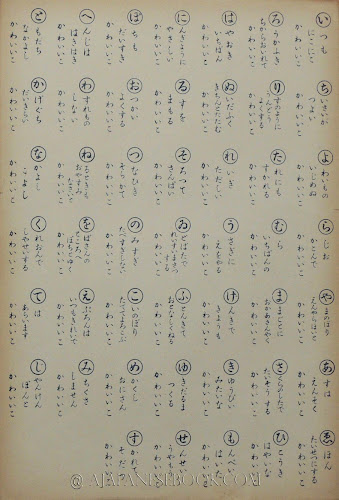 いつも
にこにこ
かわいいこ
ろうかふき
ちからをいれて
かわいいこ
はやおき
いちばん
かわいいこ
にんぎように
やさしい
かわいいこ
ぽちも
だいすき
かわいいこ
へんじは
はきはき
かわいいこ
ともだち
なかよし
かわいいこ
ちいさいが
つよい
かわいいこ
りすのように
うんどう
よくする
かわいいこ
ぬいだふく
きちんとたたむ
かわいいこ
るすを
まもる
かわいいこ
おつかい
よくする
かわいいこ
わすれもの
しない
かわいいこ
かげぐち
だいきらい
かわいいこ
よわいもの
いじめぬ
かわいいこ
たれにも
すかれる
かわいいこ
れいぎ
ただしい
かわいいこ
そろつて
さんぱい
かわいいこ
つなひき
そろつて
かわいいこ
ねるときも
おやすみ
なさいて
かわいいこ
なかよし
こよし
かわいいこ
らじお
かこんで
かわいいこ
むら
いちばんの
かわいいこ
うさぎに
えをやる
かわいいこ
ゐどばたで
れいすいまさつ
かわいいこ
のみすき
たべすきしない
かわいいこ
をばさんの
ところへ
ぽちとゆく
かわいいこ
くれおんで
しやせいする
かわいいこ
やまのぼり
えんやらほいと
かわいいこ
ままごとに
おかあさんや
かわいいこ
けんきで
きようも
かわいいこ
ふとんきて
おとなしくねる
かわいいこ
こいのぼり
たててよろこぶ
かわいいこ
えぷろんは
いつもきれいで
かわいいこ
ては
あらいます
かわいいこ
あすは
えんそく
かわいいこ
たいそうする
かわいいこ
きゆうぴい
みたいな
かわいいこ
ゆきだるま
つくる
かわいいこ
めかくし
おにさん
かわいいこ
みちくさ
しません
かわいいこ
しやんけん
ぽんと
かわいいこ
ゑほん
たいせつにする
かわいいこ
ひこうき
はやいな
かわいいこ
もんぺい
はいた
かわいいこ
せんせい
うやもう
かわいいこ
すかれて
そだつ
かわいいこ
@ AJAPANESEBOOK.COM